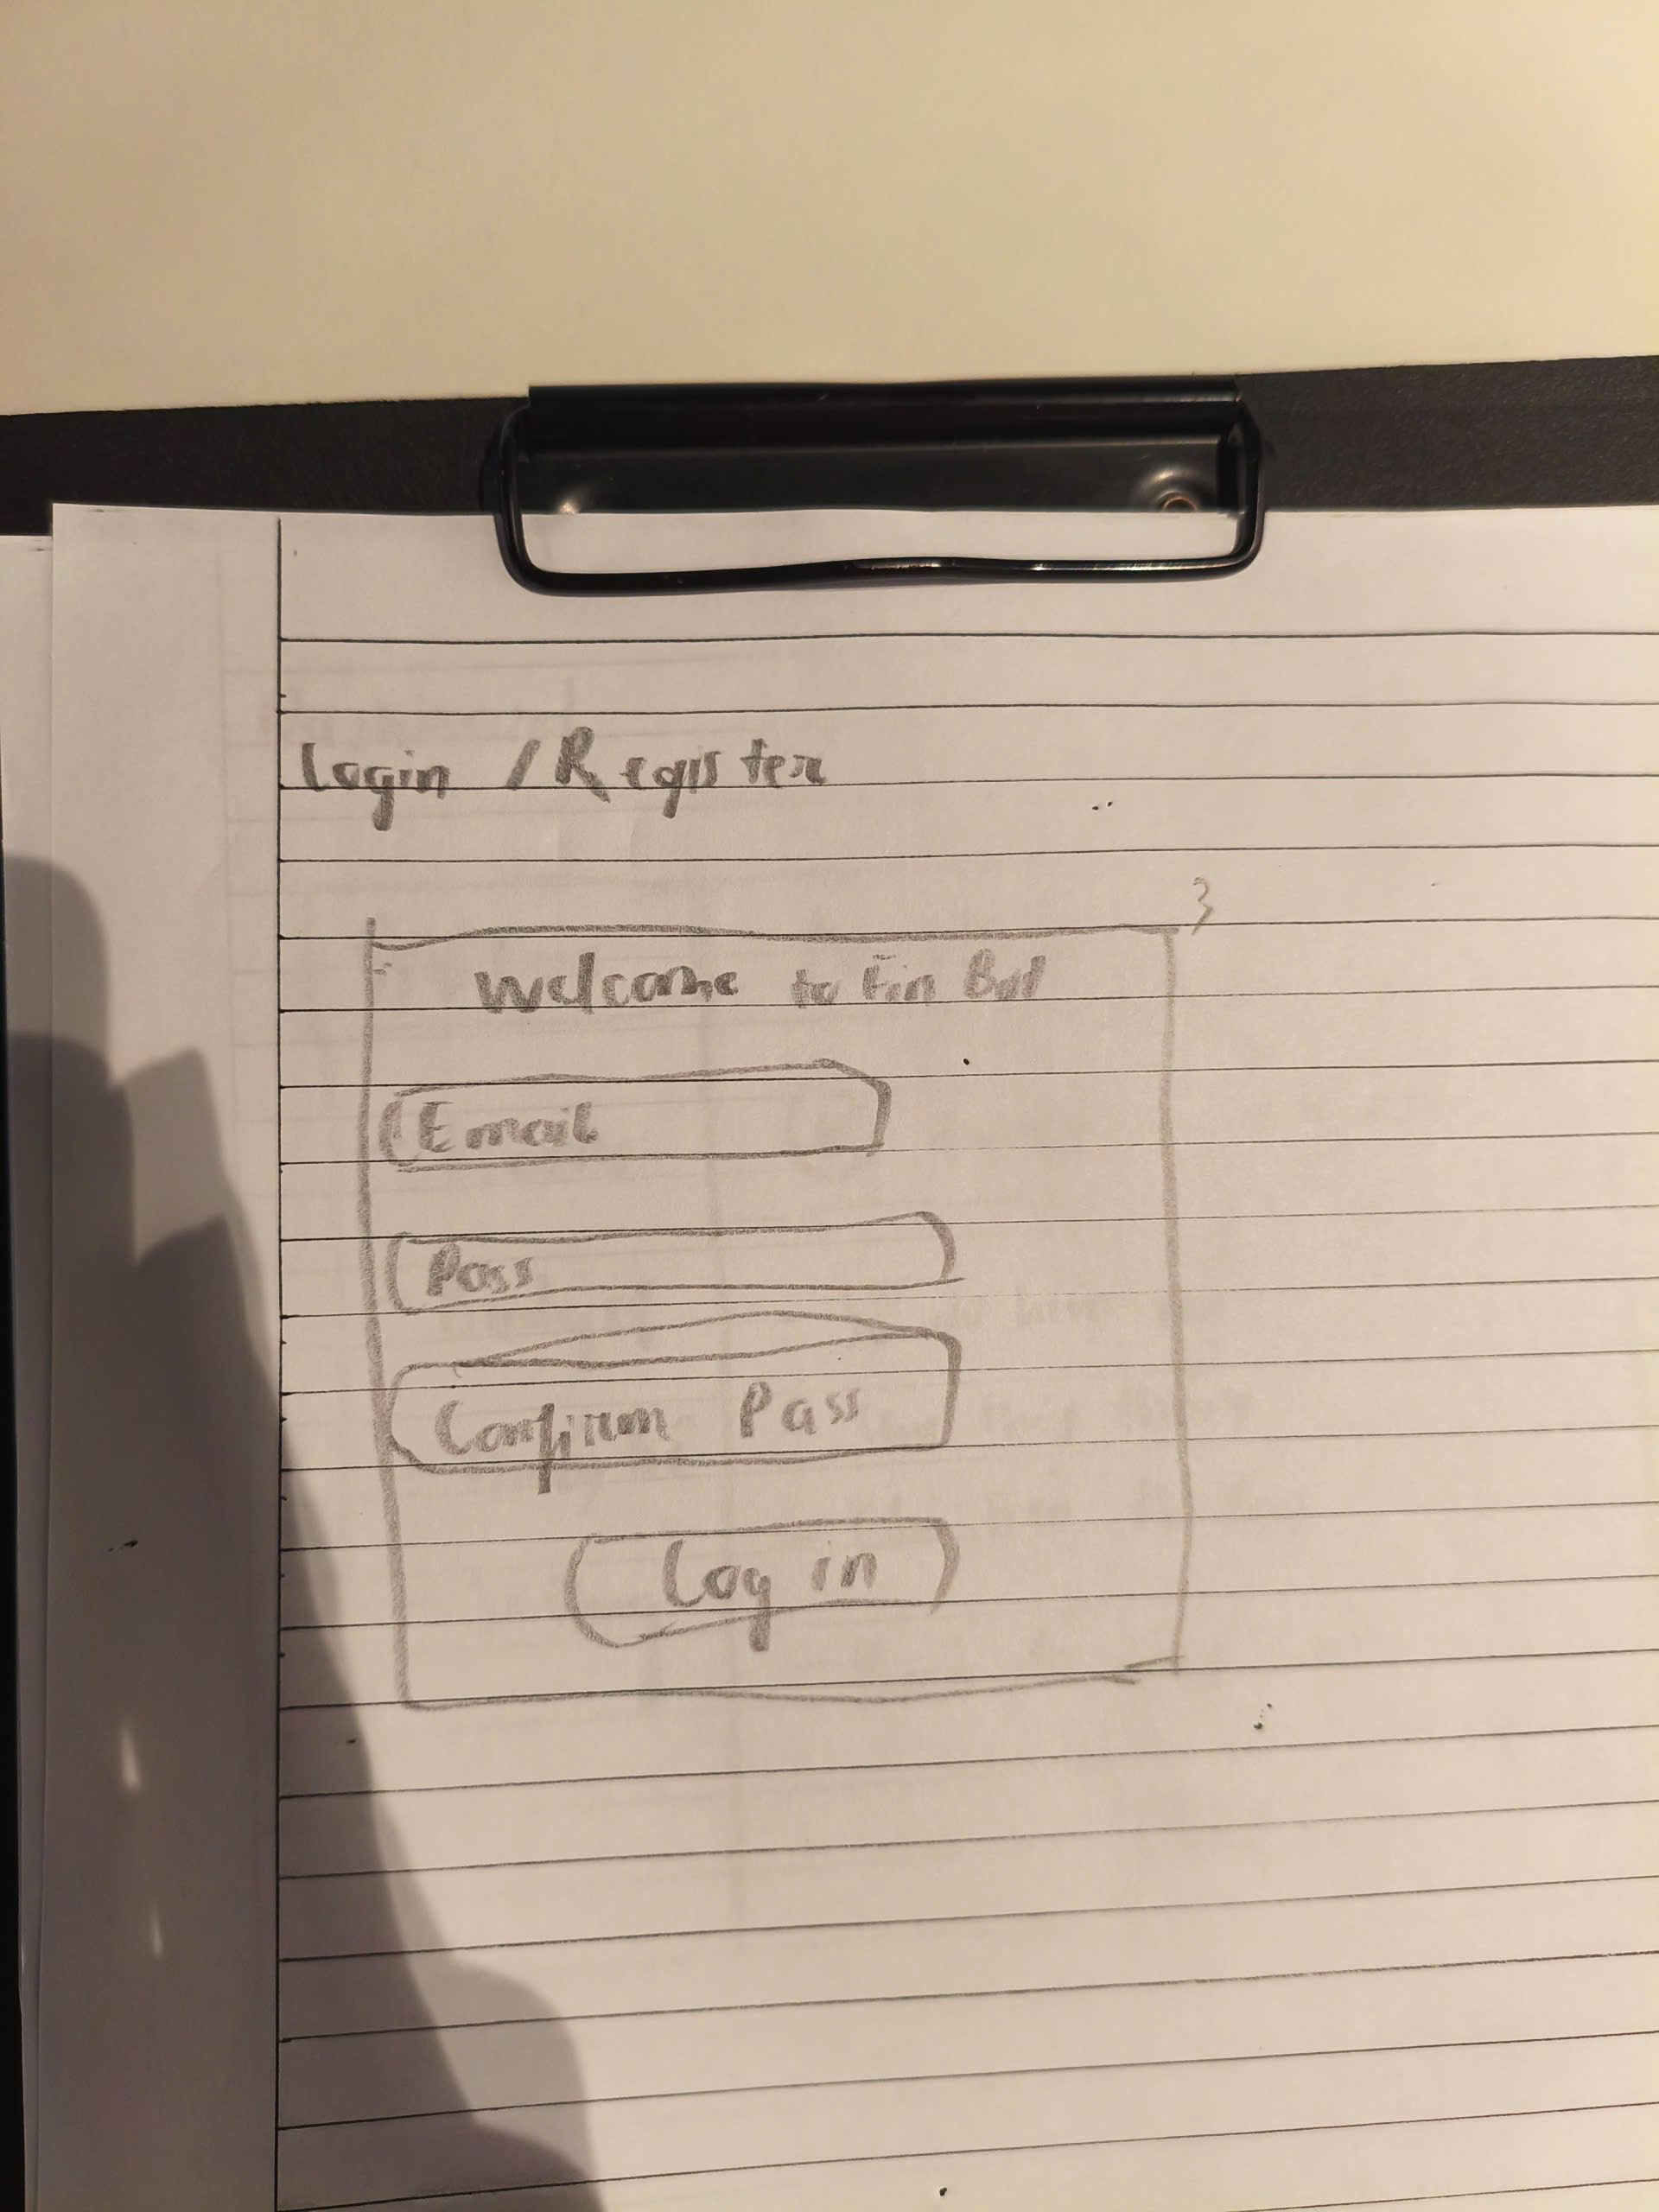 Login / Register
Welcome to Fin Bot
Email
Pass
Confirm Pass
Log in